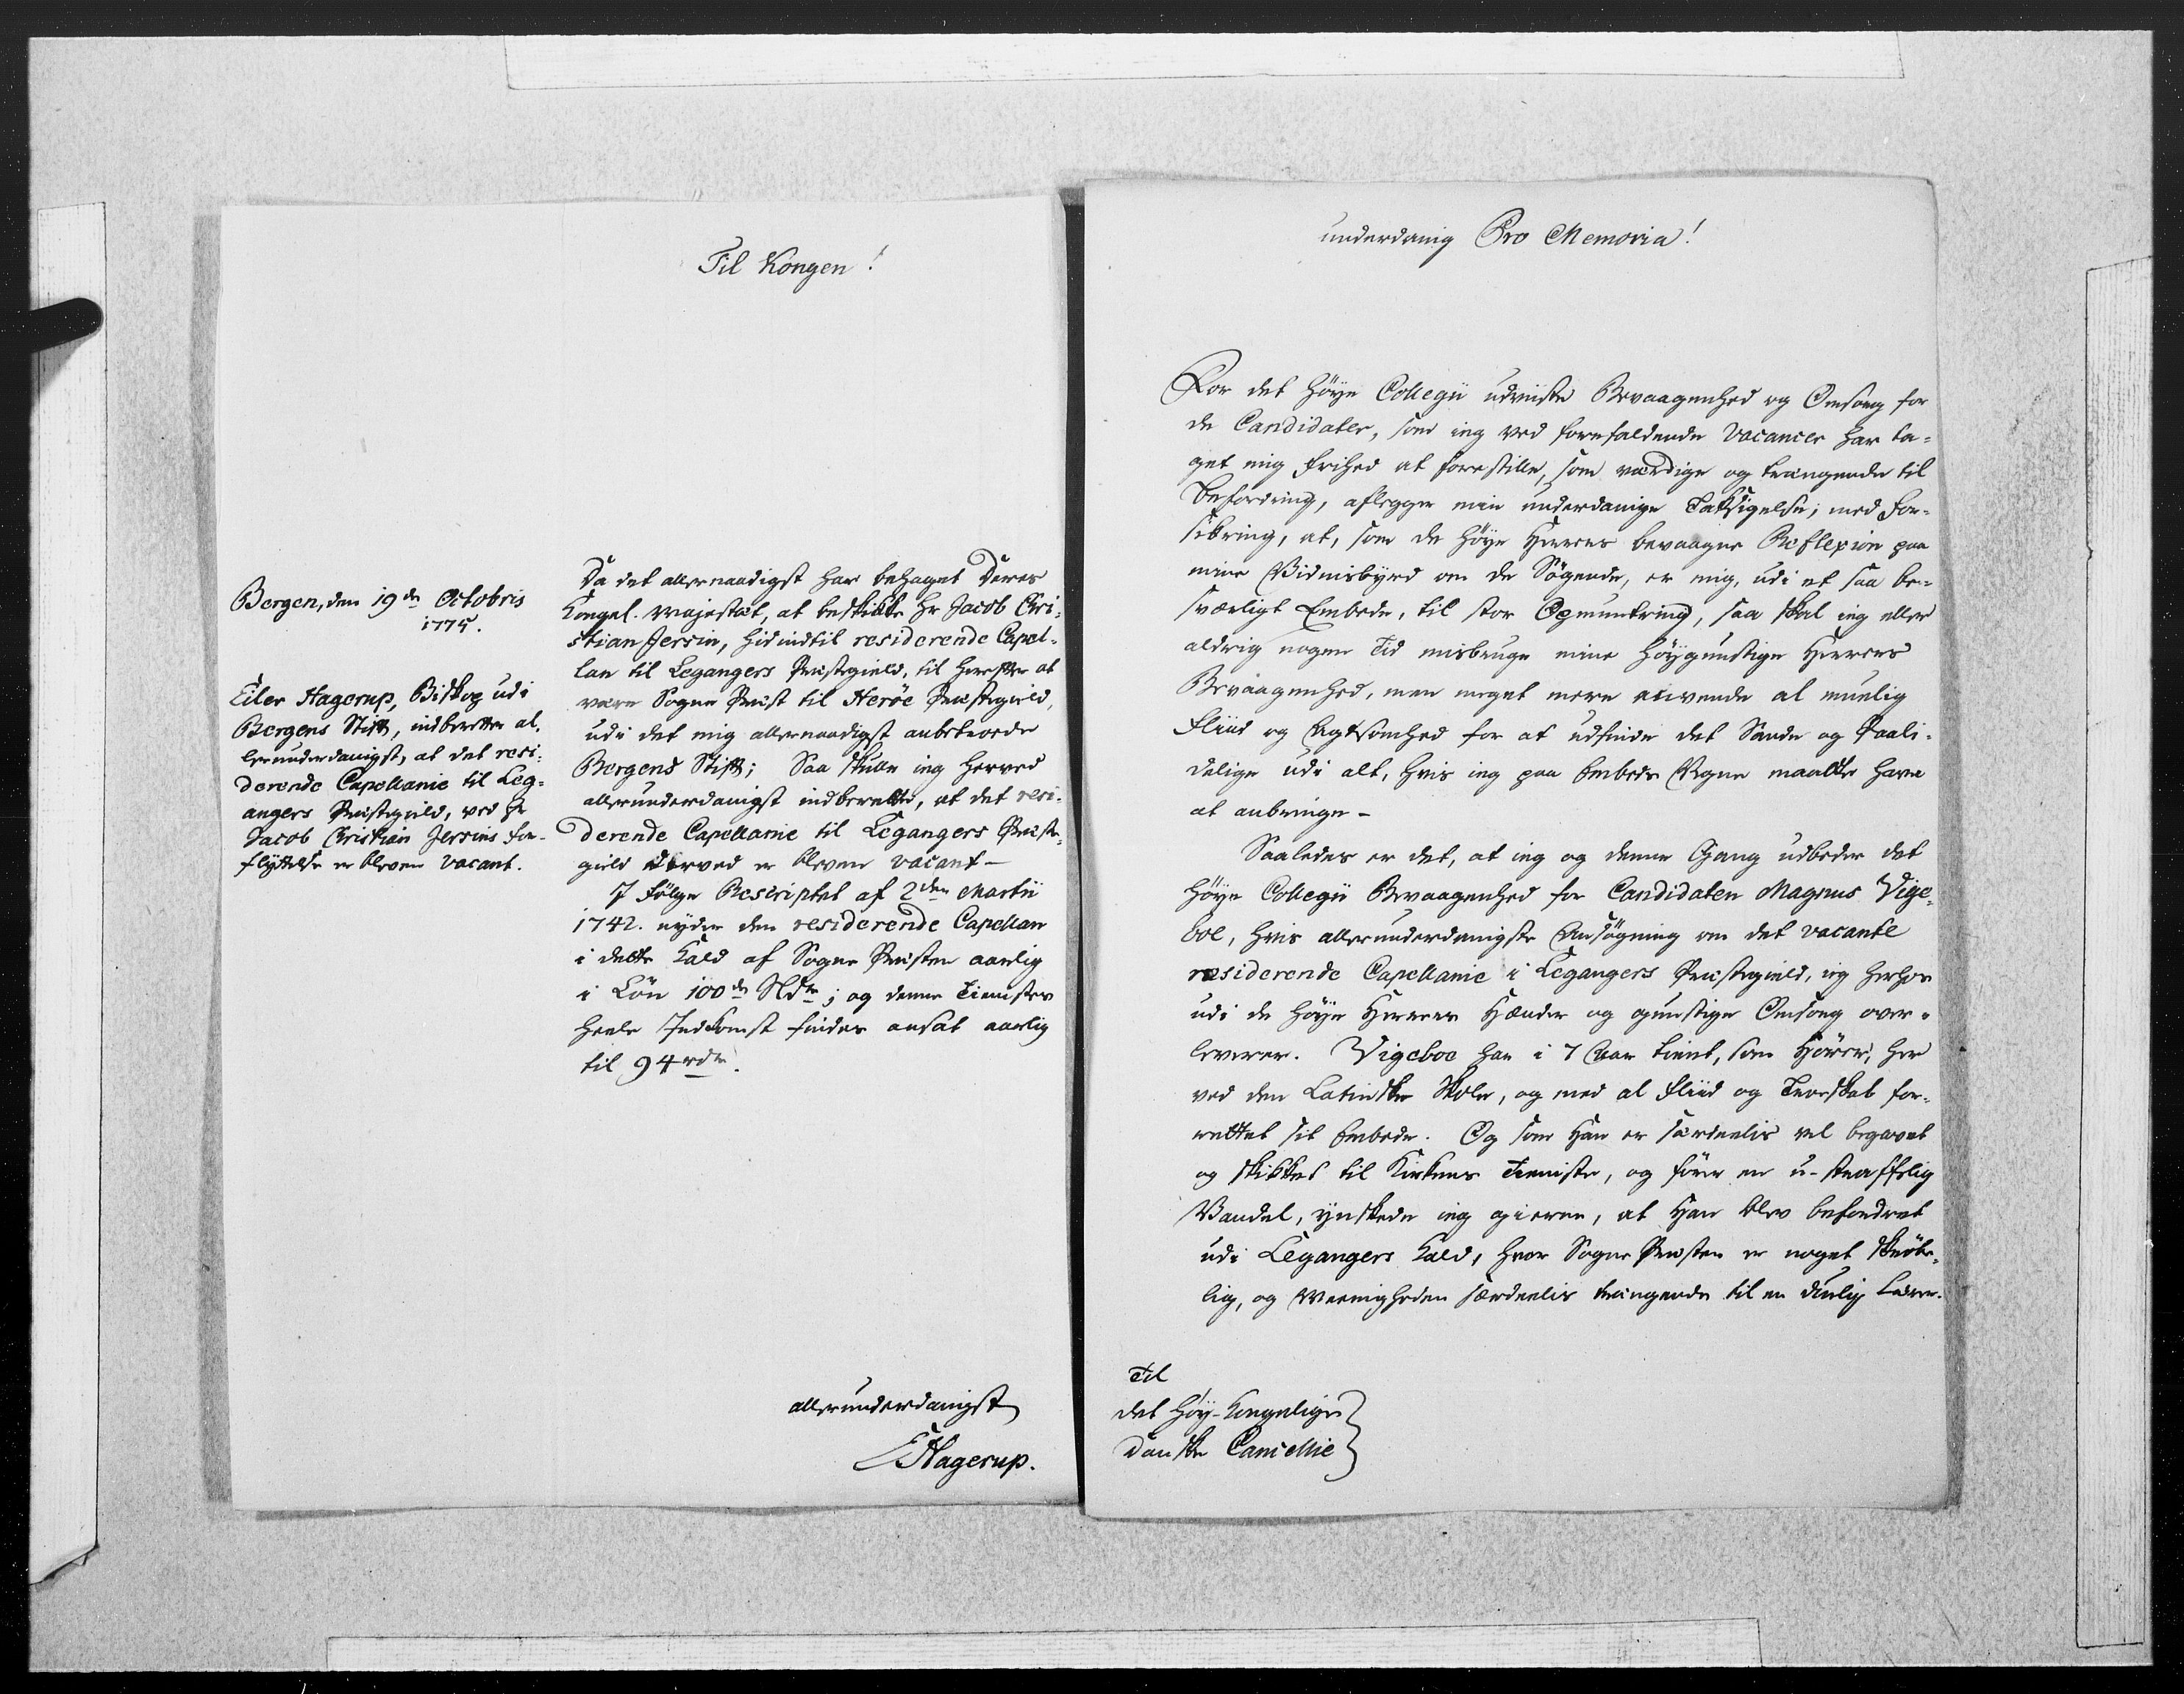 Til Kongen!
Bergen, den 19de Octobris
1775.
Eiler Hagerup, Biskop udi
Bergens Stift, indberetter al-
lerunderdanigst, at det resi-
derende Capellanie til Leg-
angers Præstegield, ved Hr
Jacob Christian Jersins for-
flyttelse er bleven vacant.
Da det allernaadigst har behaget Deres
Kongel. Majestæt, at beskikke Hr Jacob Chri-
stian Jersin, hidindtil residerende Capel-
lan til Legangers Præstegield, til herefter at
være Sogne Præst til Herøe Præstegield,
udi det mig allernaadigst anbetroede
Bergens Stift; Saa skulle jeg herved
allerunderdanigst indberette, at det resi-
derende Capellanie til Legangers Præste-
gield derved er bleven vacant -
I følge Rescriptet af 2den Martii
1742. nyder den residerende Capellan
i dette Kald af Sogne Præsten aarlig
i Løn 100de Rdr; og denne Tienistes
heele Indkomst findes ansat aarlig
til 94 rdr.
allerunderdanigst
EHagerup.
underdanig Pro Memoria!
For det høye Collegii udviiste Bevaagenhed og Omsorg for
de Candidater, som jeg ved forefaldende Vacancer har ta-
get mig frihed at forestille, som værdige og trængende til
Befordring, aflegger min underdanige Taksigelse; med for-
sikring, at, som de høye Herrers bevaagne Reflexion paa
mine Vidnisbyrd om de Søgende, er mig, udi et saa be-
sværligt Embede, til stor Opmuntring, saa skal jeg eller
aldrig nogen Tid misbruge mine høygunstige Herrers
Bevaagenhed, men meget mere anvende al muelig
Fliid og Agtsomhed for at udfinde det Sande og Paali-
delige udi alt, hvis jeg paa Embeds Vegne maatte have
at anbringe -
Saaledes er det, at jeg og denne Gang udbeder det
høye Collegii Bevaagenhed for Candidaten Magnus Vige-
boe, hvis allerunderdanigste Ansøgning om det vacante
residerende Capellanie i Legangers Præstegield, jeg herhos
udi de høye Herrers Hænder og gunstige Omsorg over-
leverer. Vigeboe har i 7 Aar tient, som Hører, her
ved den Latinske Skole, og med al Fliid og Troeskab for-
rettet sit Embede. Og som Han er særdeelis vel begavet
og skikket til Kirkens Tieniste, og fører en u-straffelig
Vandel, ynskede jeg gierne, at Han blev befordret
udi Legangers Kald, hvor Sogne Præsten er noget skrøbe-
lig, og Meenigheden særdeelis trængende til en duelig Lærer.
Til
det Høy-Kongelige
Danske Cancellie